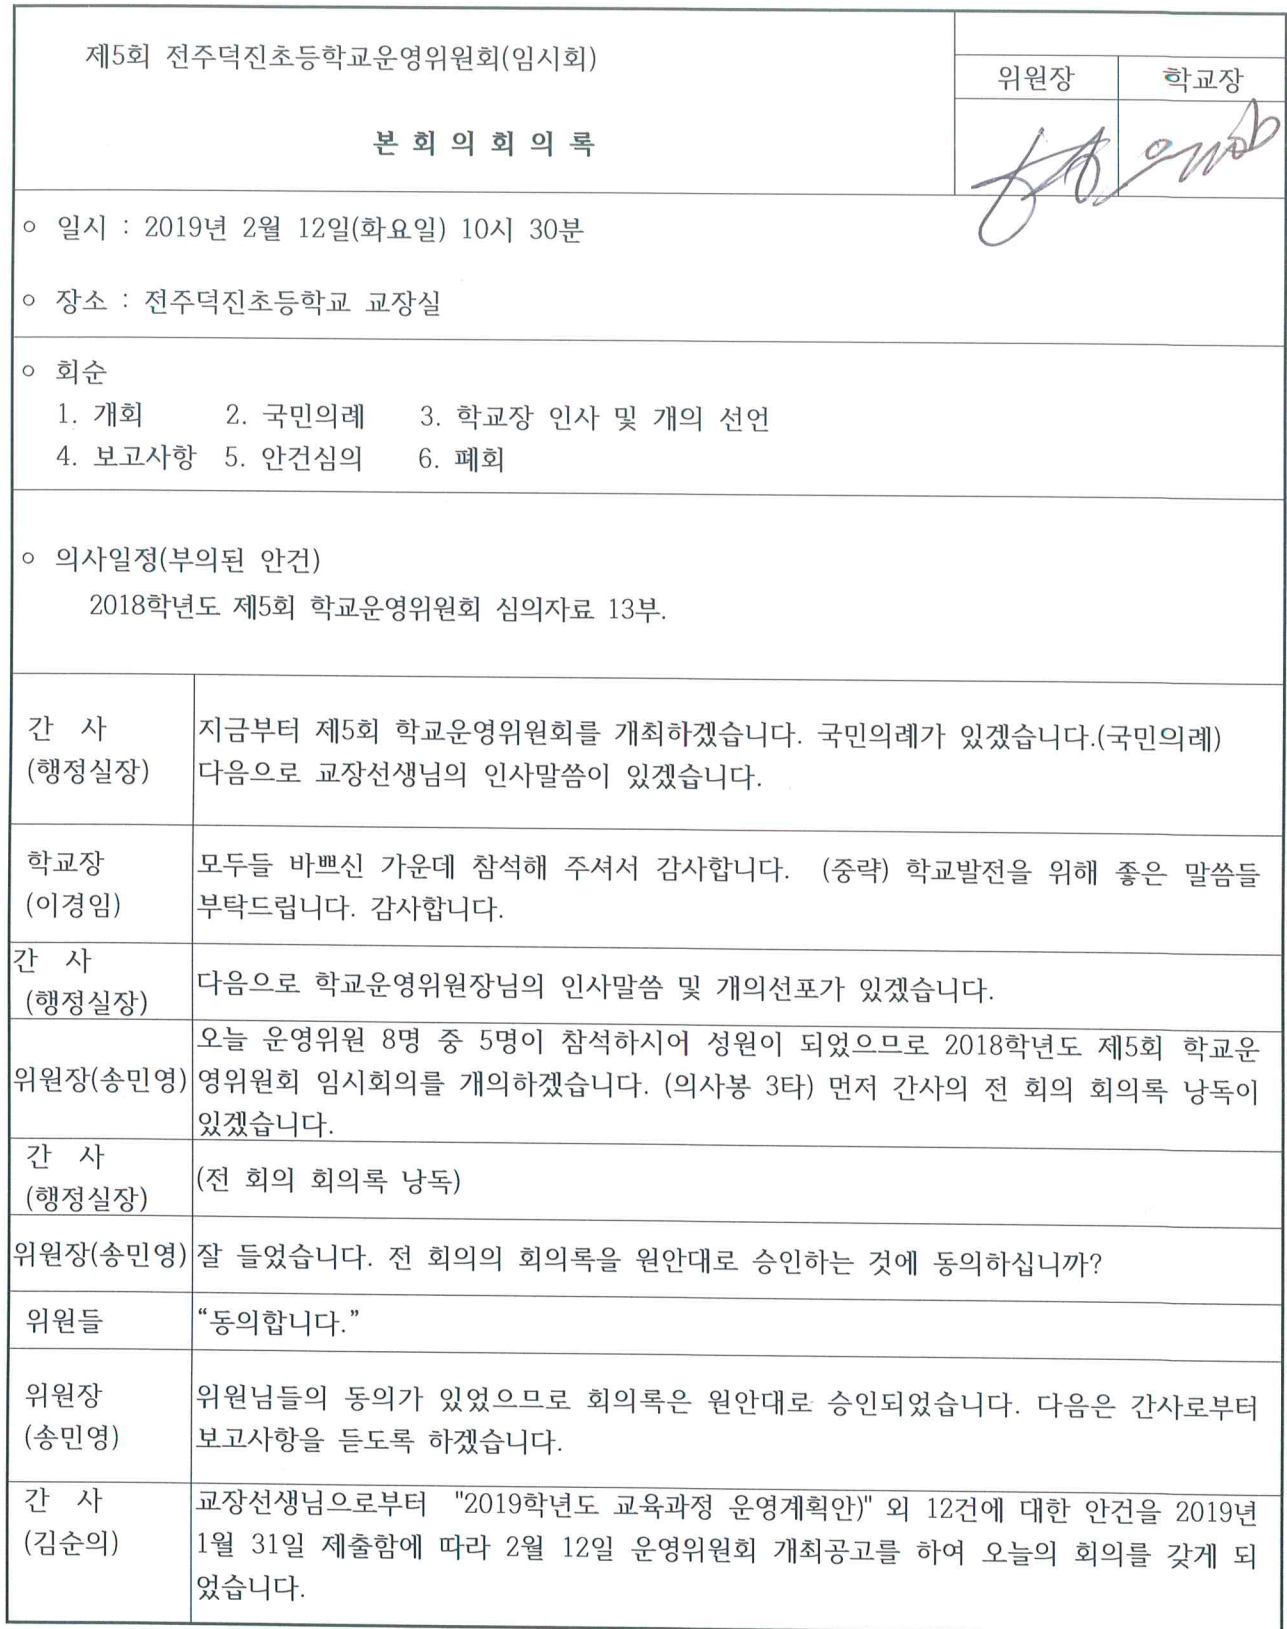 제5회 전주덕진초등학교운영위원회(임시회)
위원장 학교장
본 회 의 회 의 록
○ 일시 : 2019년 2월 12일(화요일) 10시 30분
○ 장소 : 전주덕진초등학교 교장실
○ 회순
1. 개회 2. 국민의례 3. 학교장 인사 및 개의 선언
4. 보고사항 5. 안건심의 6. 폐회
○ 의사일정(부의된 안건)
2018학년도 제5회 학교운영위원회 심의자료 13부.
간 사
(행정실장)
지금부터 제5회 학교운영위원회를 개최하겠습니다. 국민의례가 있겠습니다.(국민의례)
다음으로 교장선생님의 인사말씀이 있겠습니다.
학교장
(이경임)
모두들 바쁘신 가운데 참석해 주셔서 감사합니다. (중략) 학교발전을 위해 좋은 말씀들
부탁드립니다. 감사합니다.
간 사
(행정실장)
다음으로 학교운영위원장님의 인사말씀 및 개의선포가 있겠습니다.
위원장(송민영)
오늘 운영위원 8명 중 5명이 참석하시어 성원이 되었으므로 2018학년도 제5회 학교운
영위원회 임시회의를 개의하겠습니다. (의사봉 3타) 먼저 간사의 전 회의 회의록 낭독이
있겠습니다.
간 사
(행정실장)
(전 회의 회의록 낭독)
위원장(송민영)
잘 들었습니다. 전 회의의 회의록을 원안대로 승인하는 것에 동의하십니까?
위원들
“동의합니다.”
위원장
(송민영)
위원님들의 동의가 있었으므로 회의록은 원안대로 승인되었습니다. 다음은 간사로부터
보고사항을 듣도록 하겠습니다.
간 사
(김순의)
교장선생님으로부터 "2019학년도 교육과정 운영계획안)" 외 12건에 대한 안건을 2019년
1월 31일 제출함에 따라 2월 12일 운영위원회 개최공고를 하여 오늘의 회의를 갖게 되
었습니다.